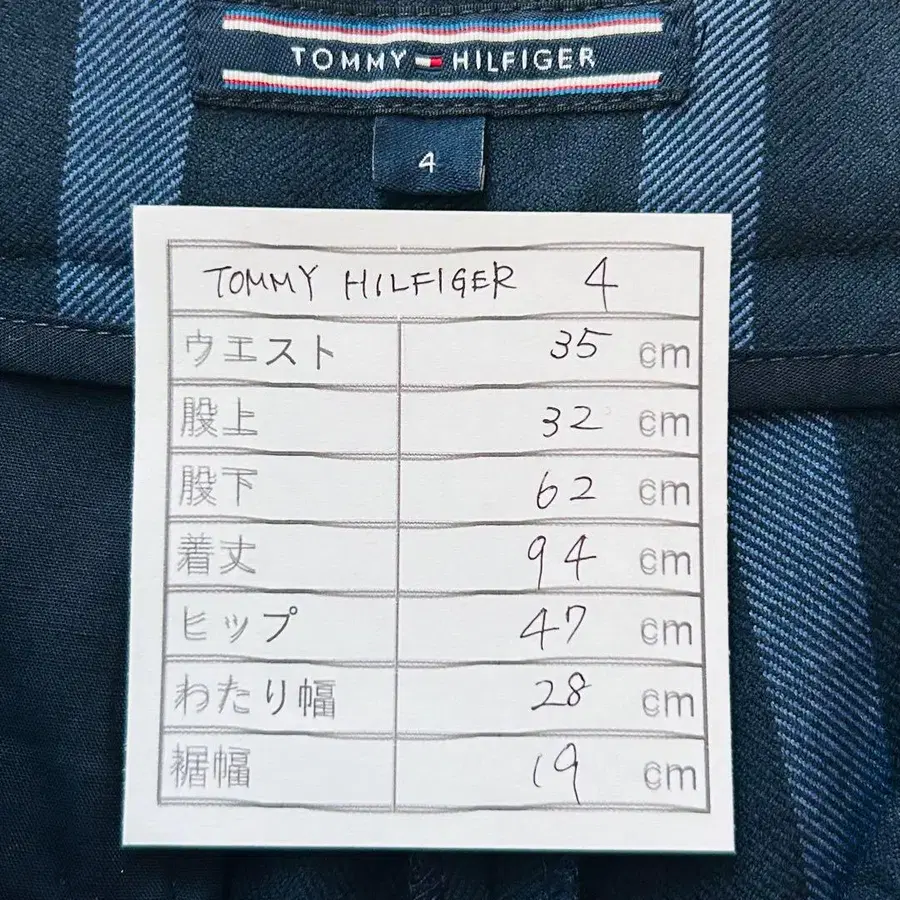 TOMMY HILFIGER
4
TOMMY HILFIGER 4
ウエスト 35 cm
股上 32 cm
股下 62 cm
着丈 94 cm
ヒップ 47 cm
わたり幅 28 cm
裾幅 19 cm